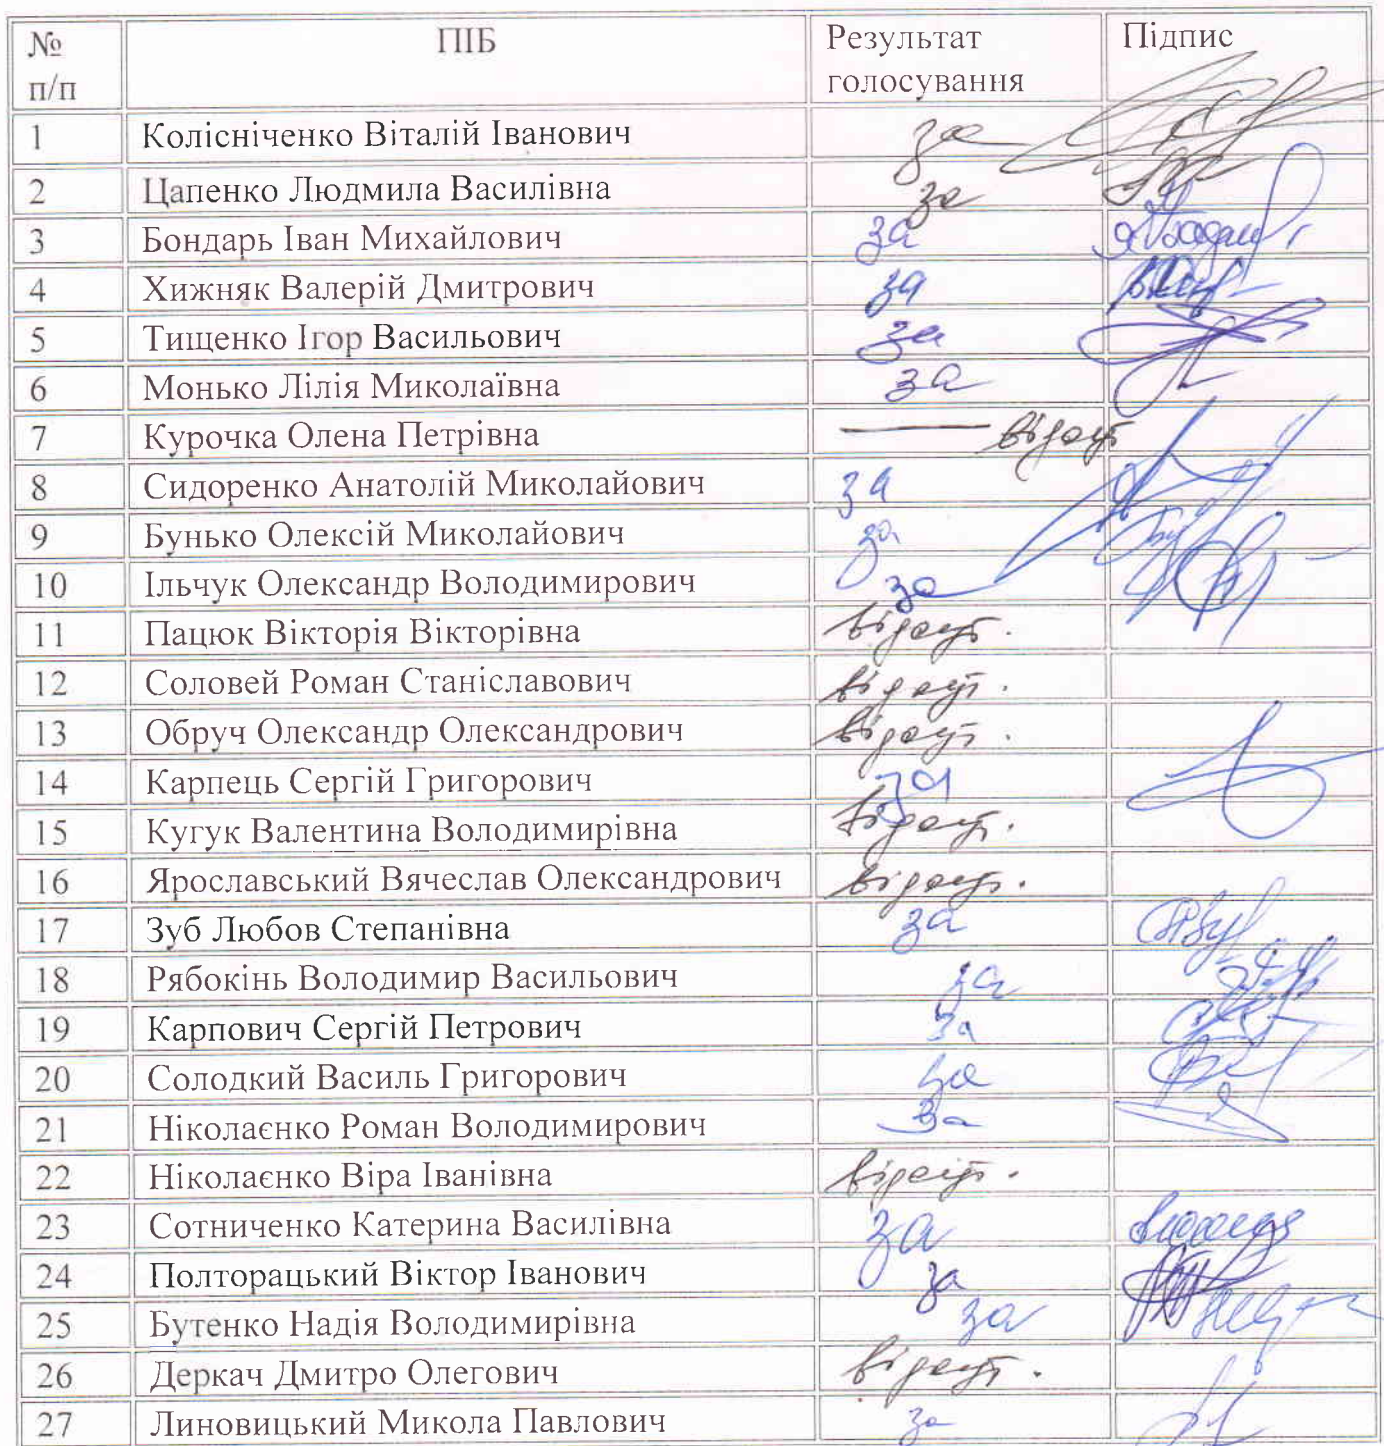 № п/п ПІБ Результат голосування Підпис
1 Колісніченко Віталій Іванович за
2 Цапенко Людмила Василівна за
3 Бондарь Іван Михайлович за
4 Хижняк Валерій Дмитрович за
5 Тищенко Ігор Васильович за
6 Монько Лілія Миколаївна за
7 Курочка Олена Петрівна — відсут
8 Сидоренко Анатолій Миколайович за
9 Бунько Олексій Миколайович за
10 Ільчук Олександр Володимирович за
11 Пацюк Вікторія Вікторівна відсут.
12 Соловей Роман Станіславович відсут.
13 Обруч Олександр Олександрович відсут.
14 Карпець Сергій Григорович за
15 Кугук Валентина Володимирівна відсут.
16 Ярославський Вячеслав Олександрович відсут.
17 Зуб Любов Степанівна за
18 Рябокінь Володимир Васильович за
19 Карпович Сергій Петрович за
20 Солодкий Василь Григорович за
21 Ніколаєнко Роман Володимирович за
22 Ніколаєнко Віра Іванівна відсут.
23 Сотниченко Катерина Василівна за
24 Полторацький Віктор Іванович за
25 Бутенко Надія Володимирівна за
26 Деркач Дмитро Олегович відсут.
27 Линовицький Микола Павлович за